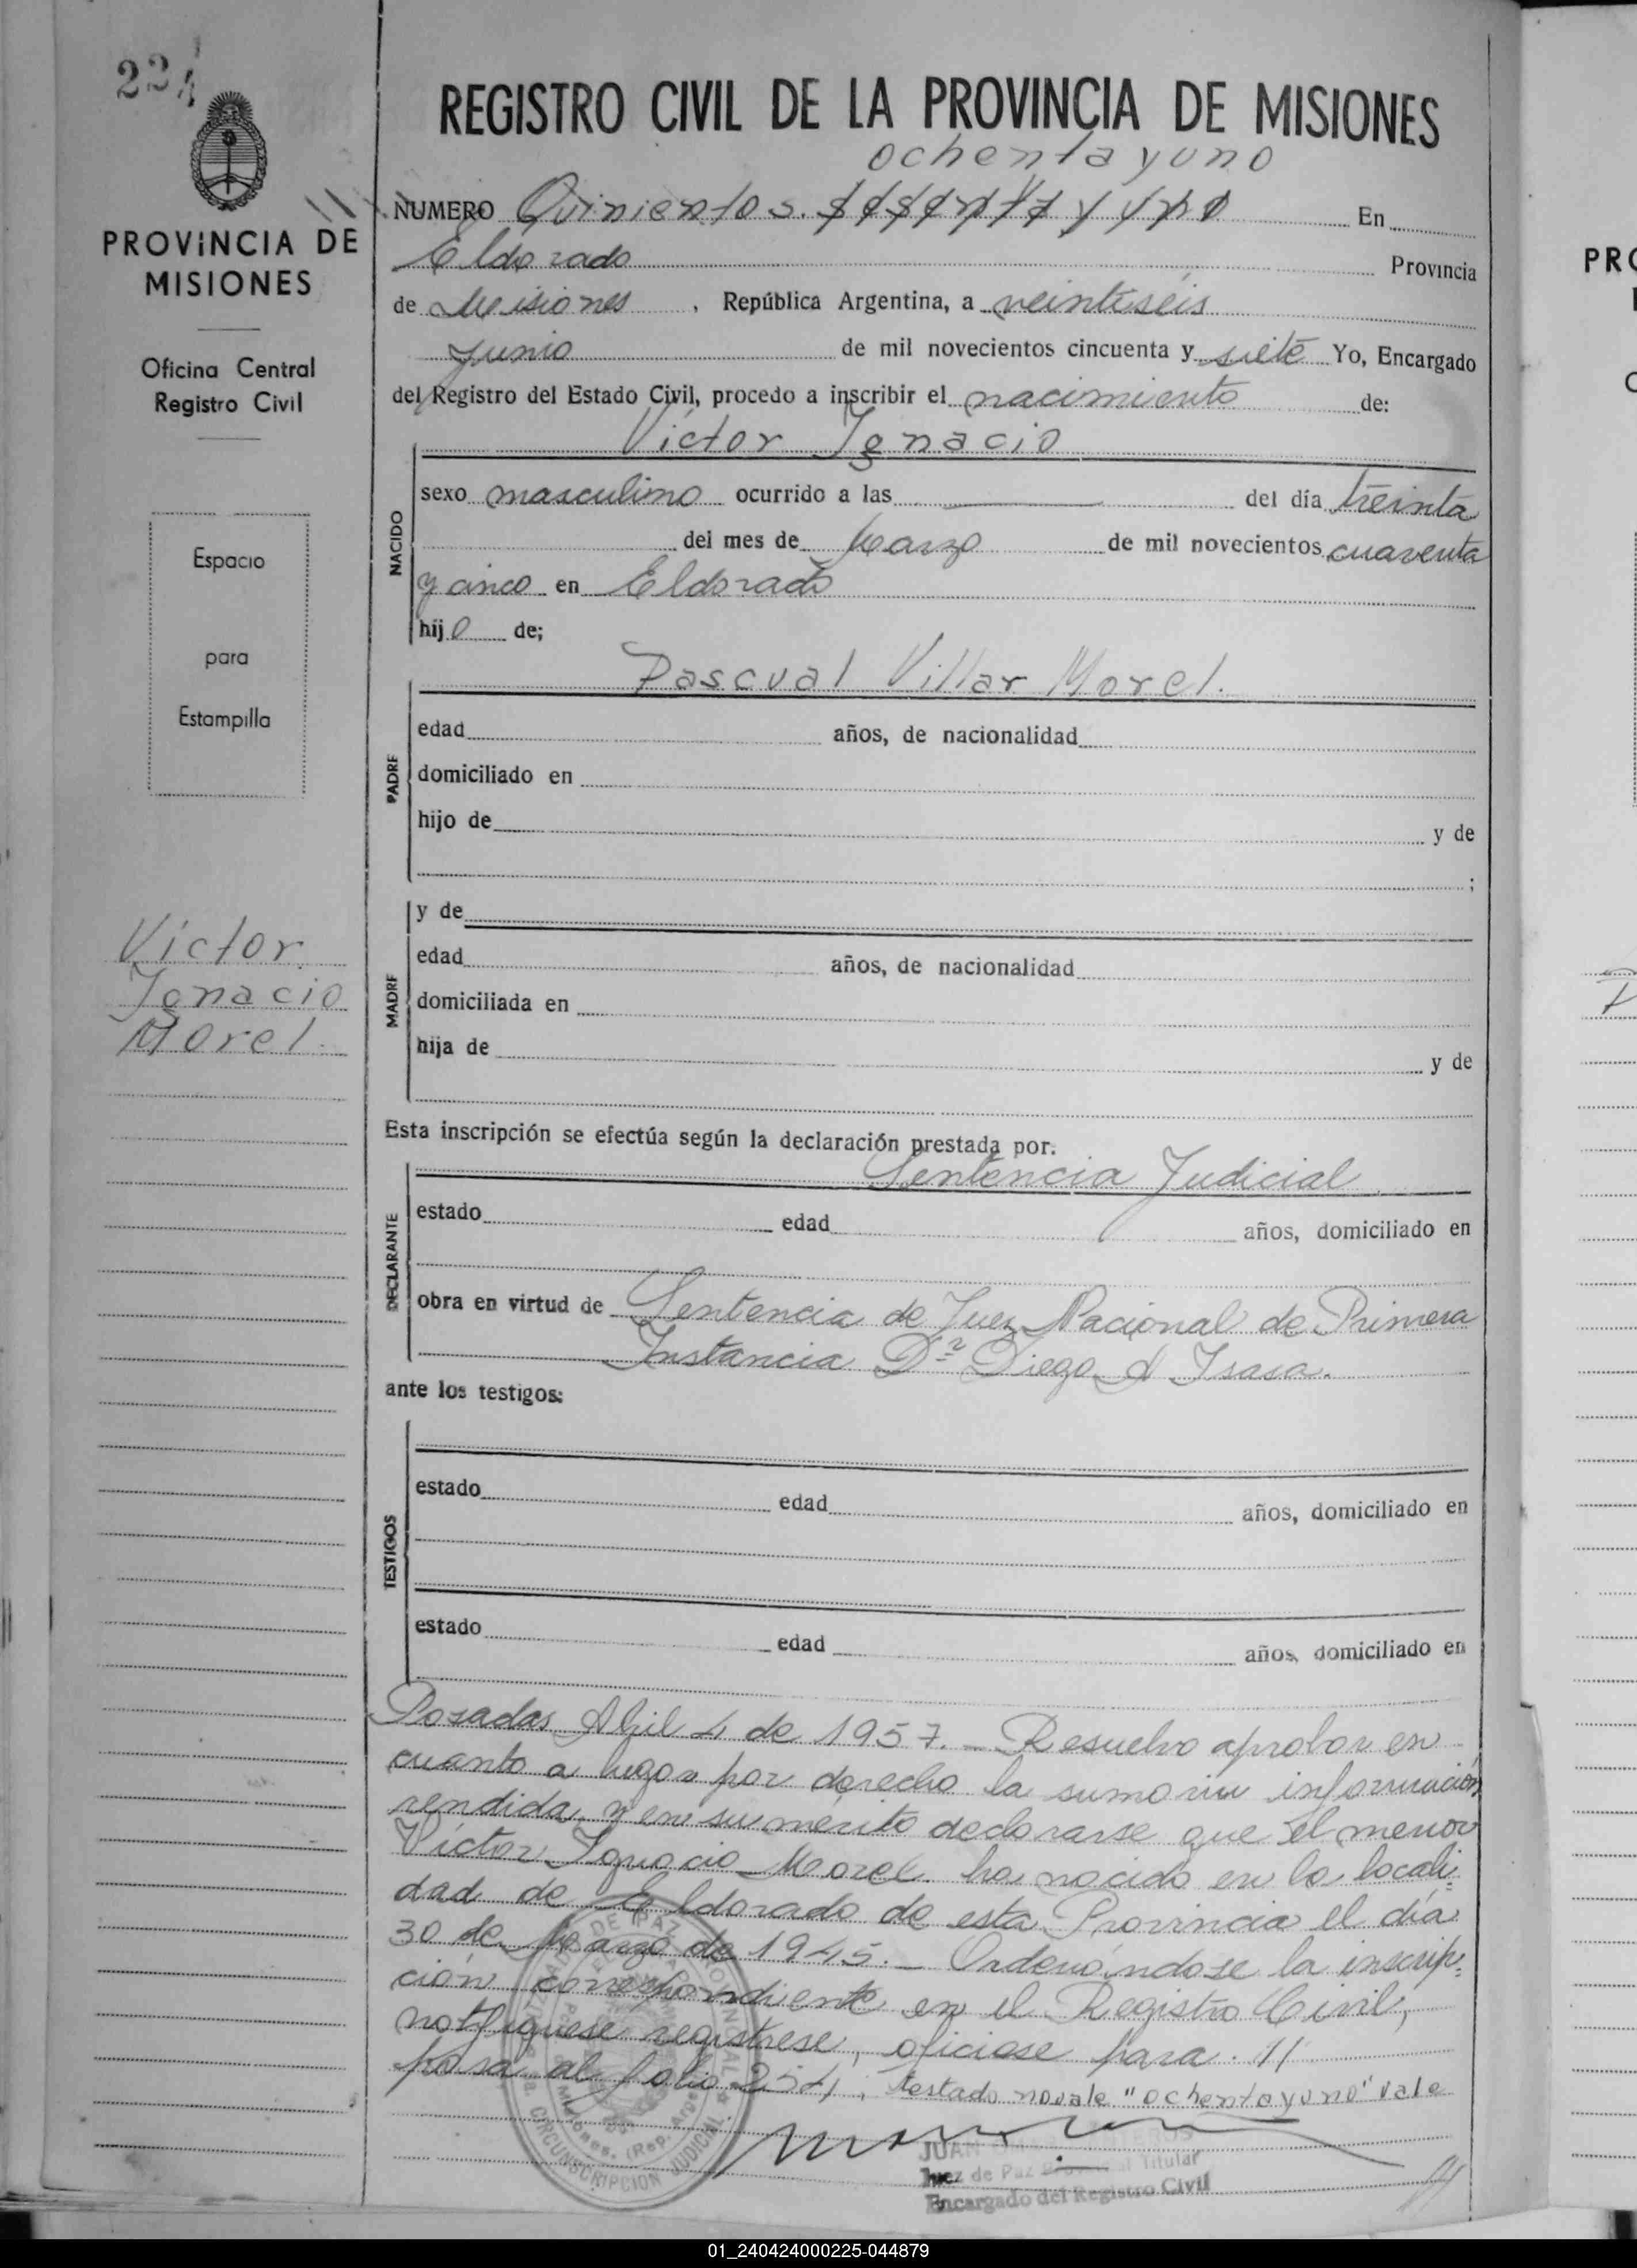 224
REGISTRO CIVIL DE LA PROVINCIA DE MISIONES
ochenta y uno
NUMERO Quinientos. sesenta y uno En
Eldorado Provincia
de Misiones, República Argentina, a veintiséis
Junio de mil novecientos cincuenta y siete Yo, Encargado
del Registro del Estado Civil, procedo a inscribir el nacimiento de:
Victor Ignacio
NACIDO
sexo masculino ocurrido a las del día treinta
del mes de Marzo de mil novecientos cuarenta
y cinco en Eldorado
hijo de;
Pascual Villar Morel.
PADRE
edad años, de nacionalidad
domiciliado en
hijo de y de
;
MADRE
y de
edad años, de nacionalidad
domiciliada en
hija de y de
Esta inscripción se efectúa según la declaración prestada por.
Sentencia Judicial
DECLARANTE
estado edad años, domiciliado en
obra en virtud de Sentencia de Juez Nacional de Primera
Instancia Dr Diego A Isasa.
ante los testigos:
TESTIGOS
estado edad años, domiciliado en
estado edad años, domiciliado en
Posadas Abril 4 de 1957.- Resuelvo aprobar en
cuanto a lugar por derecho la sumaria información
rendida y en su mérito declararse que el menor
Víctor Ignacio Morel ha nacido en la locali=
dad de Eldorado de esta Provincia el día
30 de Marzo de 1945.- Ordenándose la inscrip=
ción correspondiente en el Registro Civil,
notifíquese regístrese, ofíciese para. //
pasa al folio 254, testado no vale "ochenta y uno" vale
JUAN
Juez de Paz Titular
Encargado del Registro Civil
CIRCUNSCRIPCION JUDICIAL
PROVINCIA DE
MISIONES
Oficina Central
Registro Civil
Espacio
para
Estampilla
Victor
Ignacio
Morel.
PRO
01_240424000225-044879